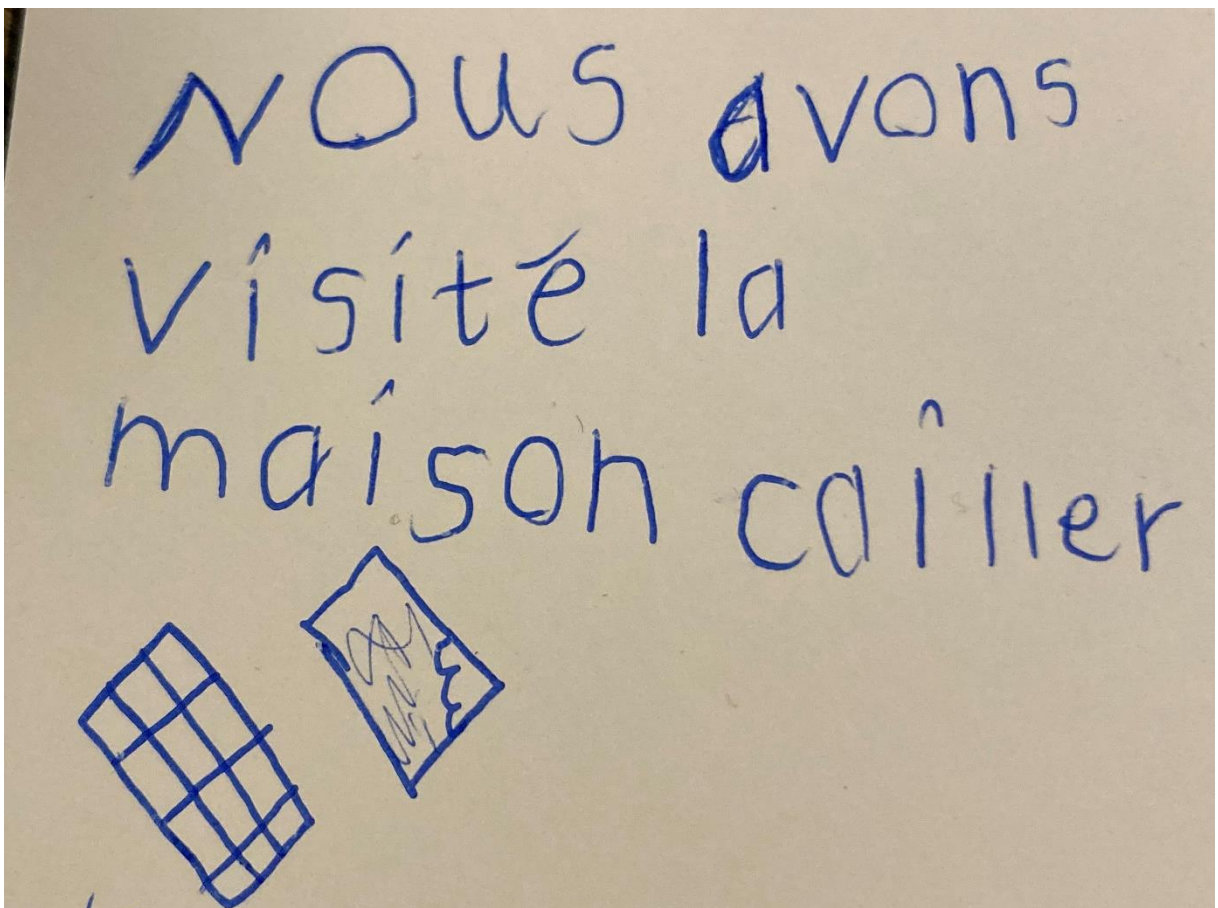 Nous avons
visité la
maison cailler